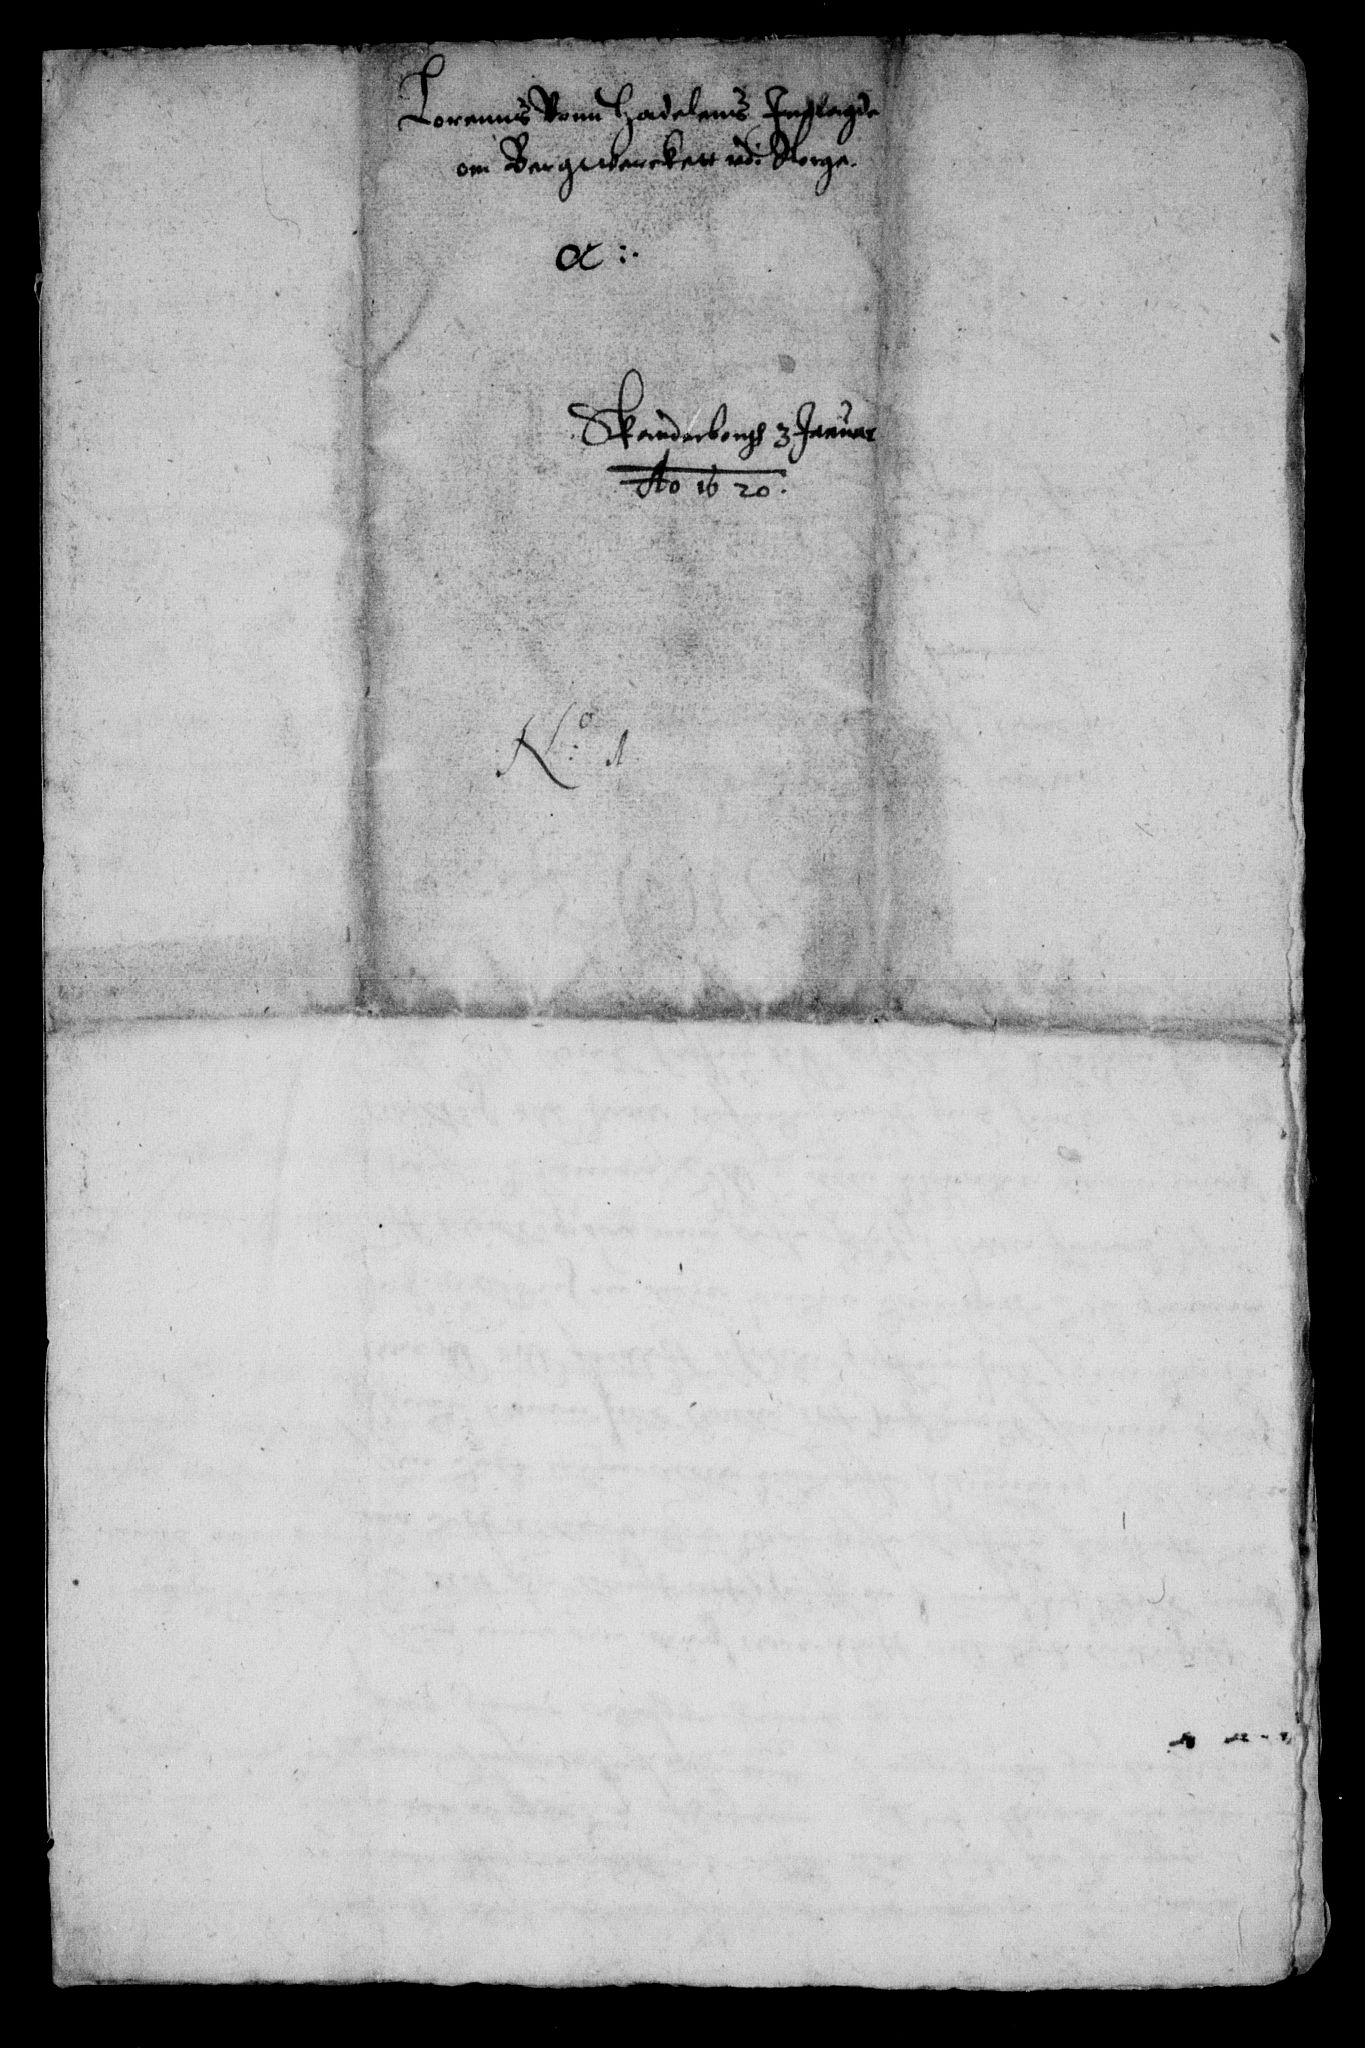 Lorennts Vonn Hadelens Indlagde
om Bergwerckett udi Norge.
α :.
Skanderborgs 3 Januar
Ao 1620.
No. 1